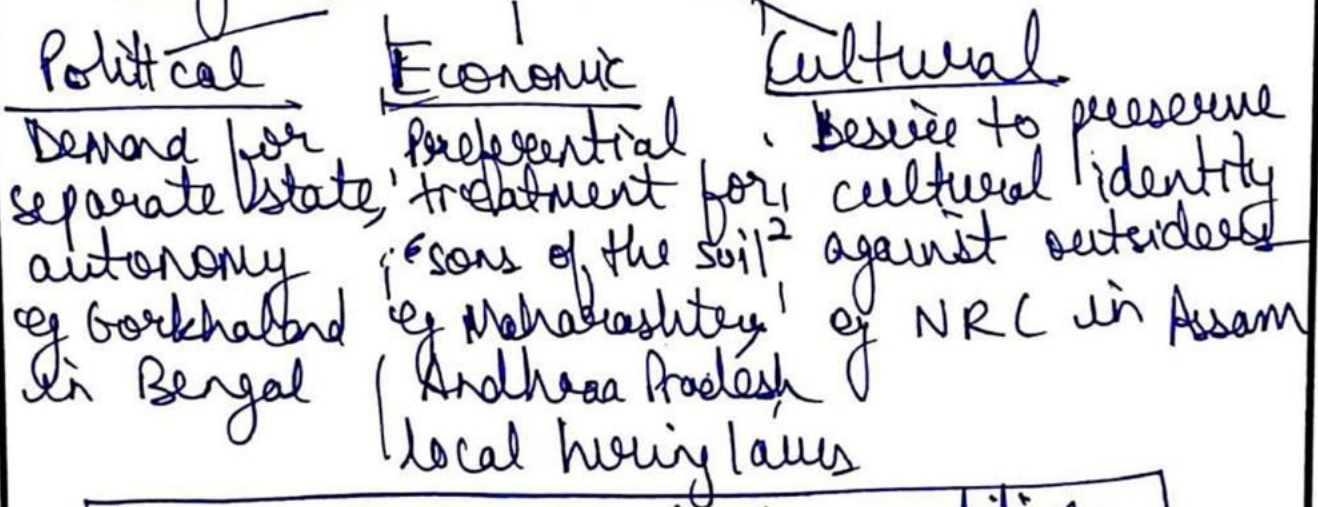 Political
Demand for
separate state,
autonomy
eg Gorkhaland
in Bengal
Economic
Preferential
treatment for
'sons of the soil'
eg Maharashtra,
Andhra Pradesh
local hiring laws
Cultural
Desire to preserve
cultural identity
against outsiders
eg NRC in Assam